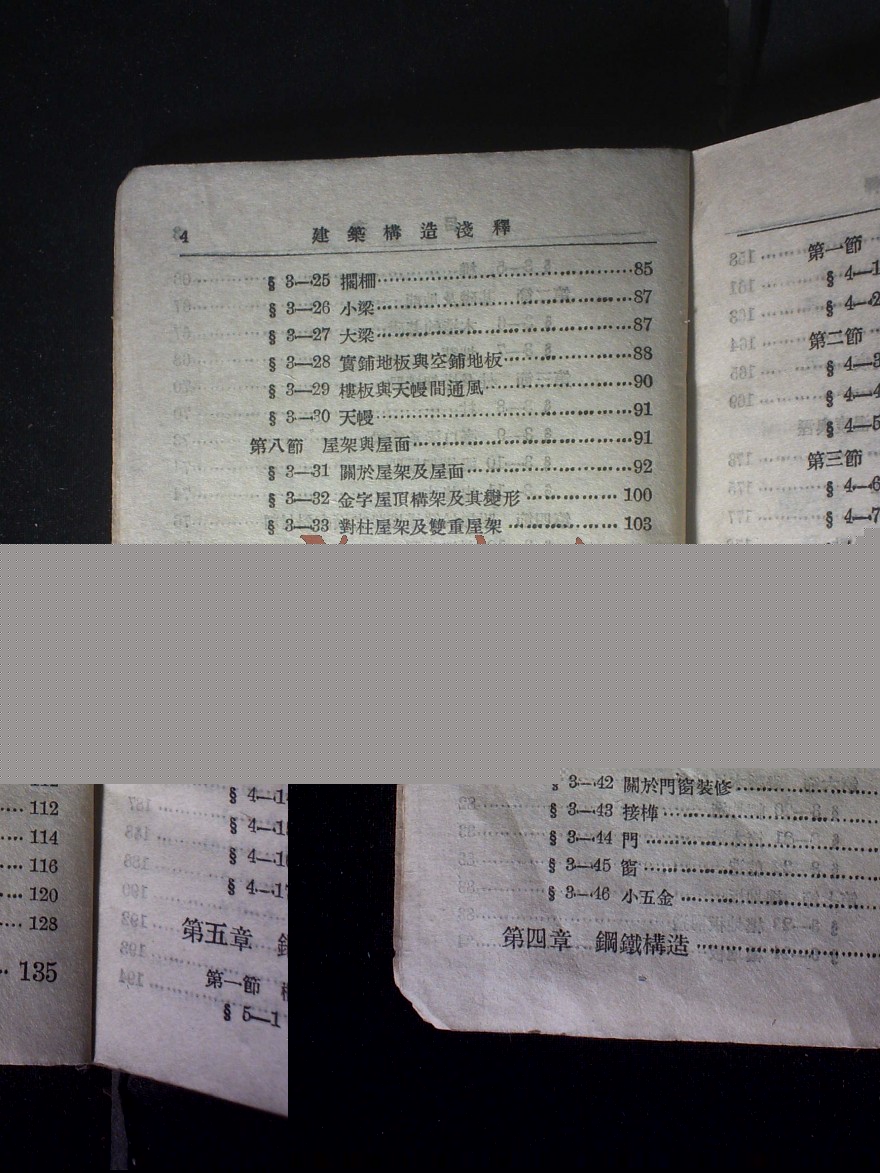 4 建築構造淺釋
§ 3—25 擱柵 85
§ 3—26 小梁 87
§ 3—27 大梁 87
§ 3—28 實鋪地板與空鋪地板 88
§ 3—29 樓板與天幔間通風 90
§ 3—30 天幔 91
第八節 屋架與屋面 91
§ 3—31 關於屋架及屋面 92
§ 3—32 金字屋頂構架及其變形 100
§ 3—33 對柱屋架及雙重屋架 103
第一節
§ 4—1
§ 4—2
第二節
§ 4—3
§ 4—4
§ 4—5
第三節
§ 4—6
§ 4—7
112
114
116
120
128
135
§ 4—1
§ 4—1
§ 4—1
§ 4—17
第五章
第一節
§ 5—1
§ 3—42 關於門窗裝修
§ 3—43 接榫
§ 3—44 門
§ 3—45 窗
§ 3—46 小五金
第四章 鋼鐵構造